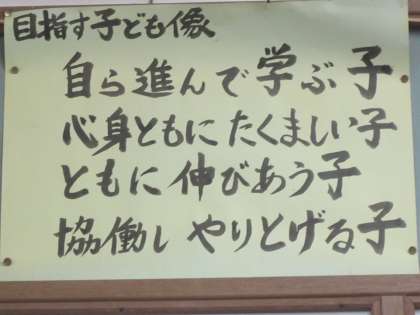 目指す子ども像
自ら進んで学ぶ子
心身ともにたくましい子
ともに伸びあう子
協働しやりとげる子